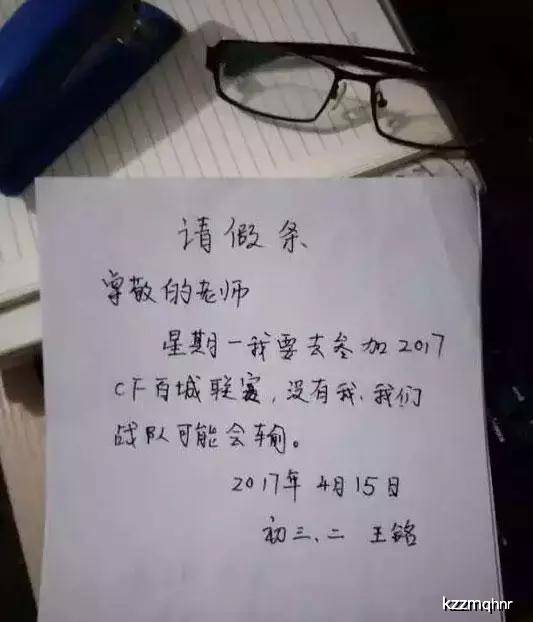 请假条
尊敬的老师
星期一我要去参加2017
CF百城联赛，没有我，我们
战队可能会输。
2017年4月15日
初三、二 王铭
kzzmqhnr